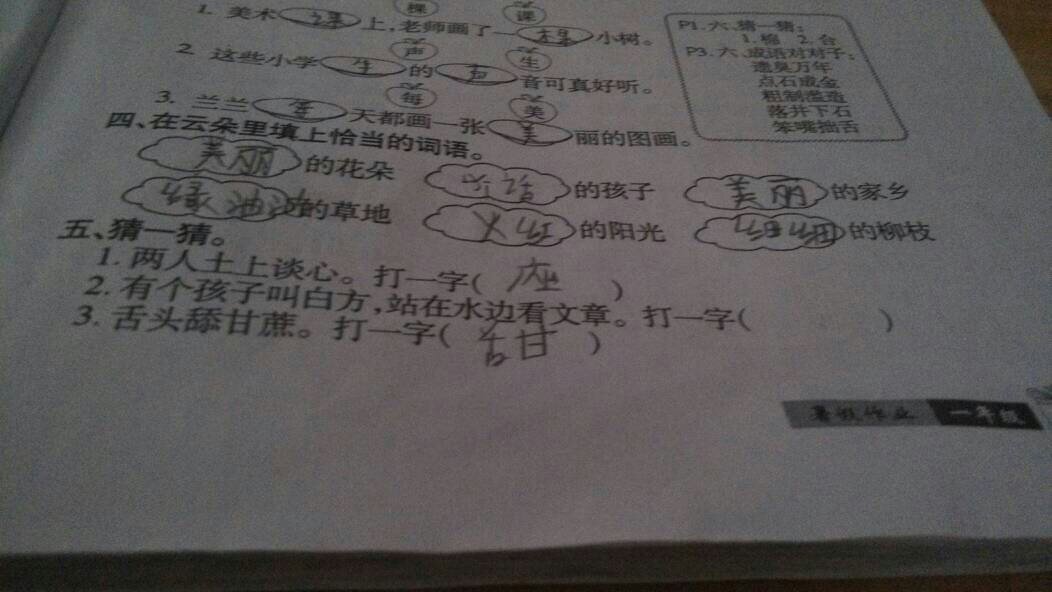 棵 课
1. 美术 课 上,老师画了一 棵 小树。
声 生
2. 这些小学 生 的 声 音可真好听。
每 美
3. 兰兰 每 天都画一张 美 丽的图画。
P1.六、猜一猜:
1.棉 2.台
P3.六、成语对对子:
遗臭万年
点石成金
粗制滥造
落井下石
笨嘴拙舌
四、在云朵里填上恰当的词语。
美丽 的花朵 听话 的孩子 美丽 的家乡
绿油油 的草地 火红 的阳光 细细 的柳枝
五、猜一猜。
1. 两人土上谈心。打一字( 座 )
2. 有个孩子叫白方,站在水边看文章。打一字( )
3. 舌头舔甘蔗。打一字( 舌甘 )
暑假作业 一年级